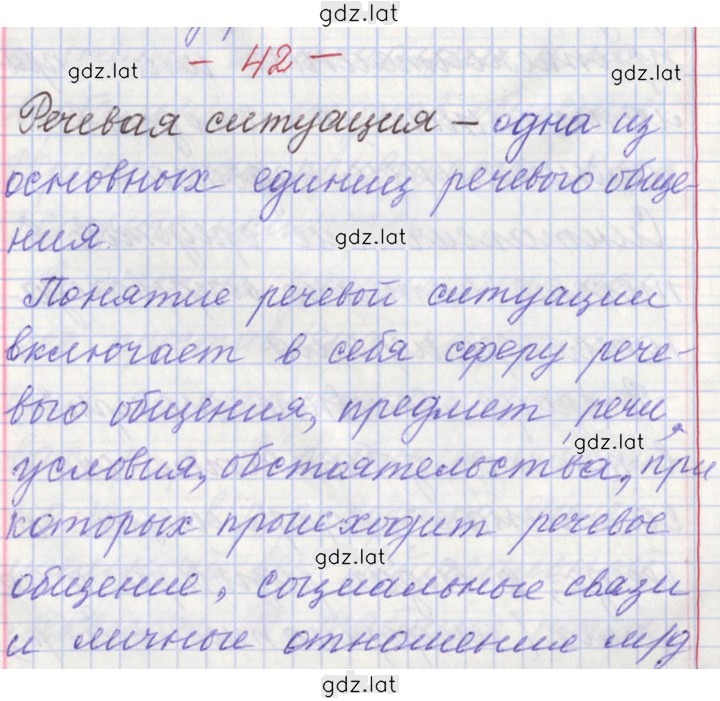 gdz.lat
- 42 -
gdz.lat gdz.lat
Речевая ситуация – одна из
основных единиц речевого обще-
ния.
gdz.lat
Понятие речевой ситуации
включает в себя сферу рече-
вого общения, предмет речи,
gdz.lat
условия, обстоятельства, при
которых происходит речевое
gdz.lat
общение, социальные связи
и личные отношение м/д
gdz.lat